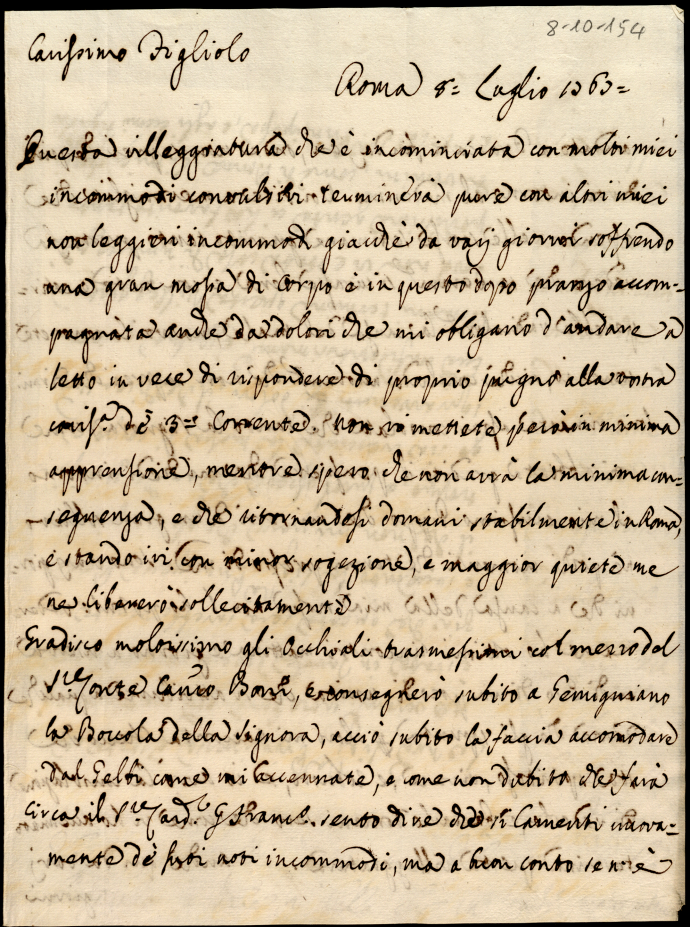 8-10-154
Carissimo Figliolo
Roma 8= Luglio 1763=
Questa villeggiatura che è incominciata con molti miei
incommodi convulsivi terminerà pure con altri miei
non leggieri incommodi giacchè da varj giorni soffrendo
una gran mossa di corpo è in questo dopo pranzo accom=
pagnata anche da dolori che mi obligano d'andare a
letto in vece di rispondere di proprio pugno alla vostra
cariss.ᵃ de 3= Corrente. Non vi mettete però in minima
apprensione, mentre spero che non avrà la minima con=
seguenza, e che ritornandosi domani stabilmente in Roma,
e stando ivi con minor sogezione, e maggior quiete me
ne libererò sollecitamente
Gradisco moltissimo gli Occhiali trasmessimi col mezzo del
Sʳᵉ Conte Bonsi, e consegnerò subito a Gemigniano
la Boccola della Signora, acciò subito la faccia accomodare
dal come mi accennate, e come non dubito che farà
Circa il Sʳᵉ Card.ˡᵉ G Franc.º sento dire che si lamenti nuova=
mente de suoi noti incommodi, ma a buon conto se n'è